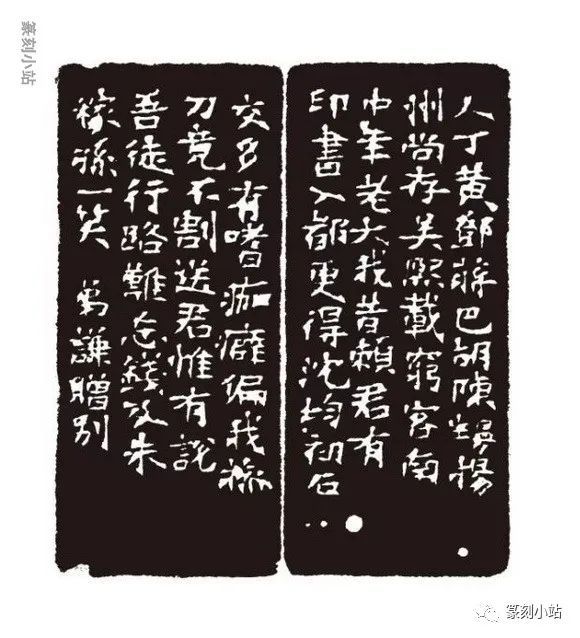 人丁黃鄧蔣巴胡陳揚
州尚存吳熙載窮客南
中年老大我昔賴君有
印書入都更得沈均初石
交多有嗜痂癖偏我操
刀竟不割送君惟有說
吾徒行路難忘錢及朱
稼孫一笑 謙贈別
篆刻小站
篆刻小站